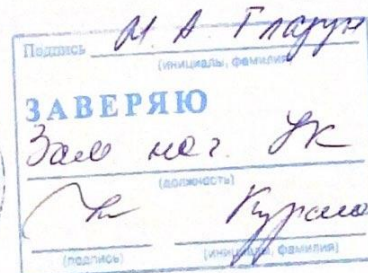 Подпись М. А. Гладун
(инициалы, фамилия)
ЗАВЕРЯЮ
Зам нач. УК
(должность)
(подпись) (инициалы, фамилия)